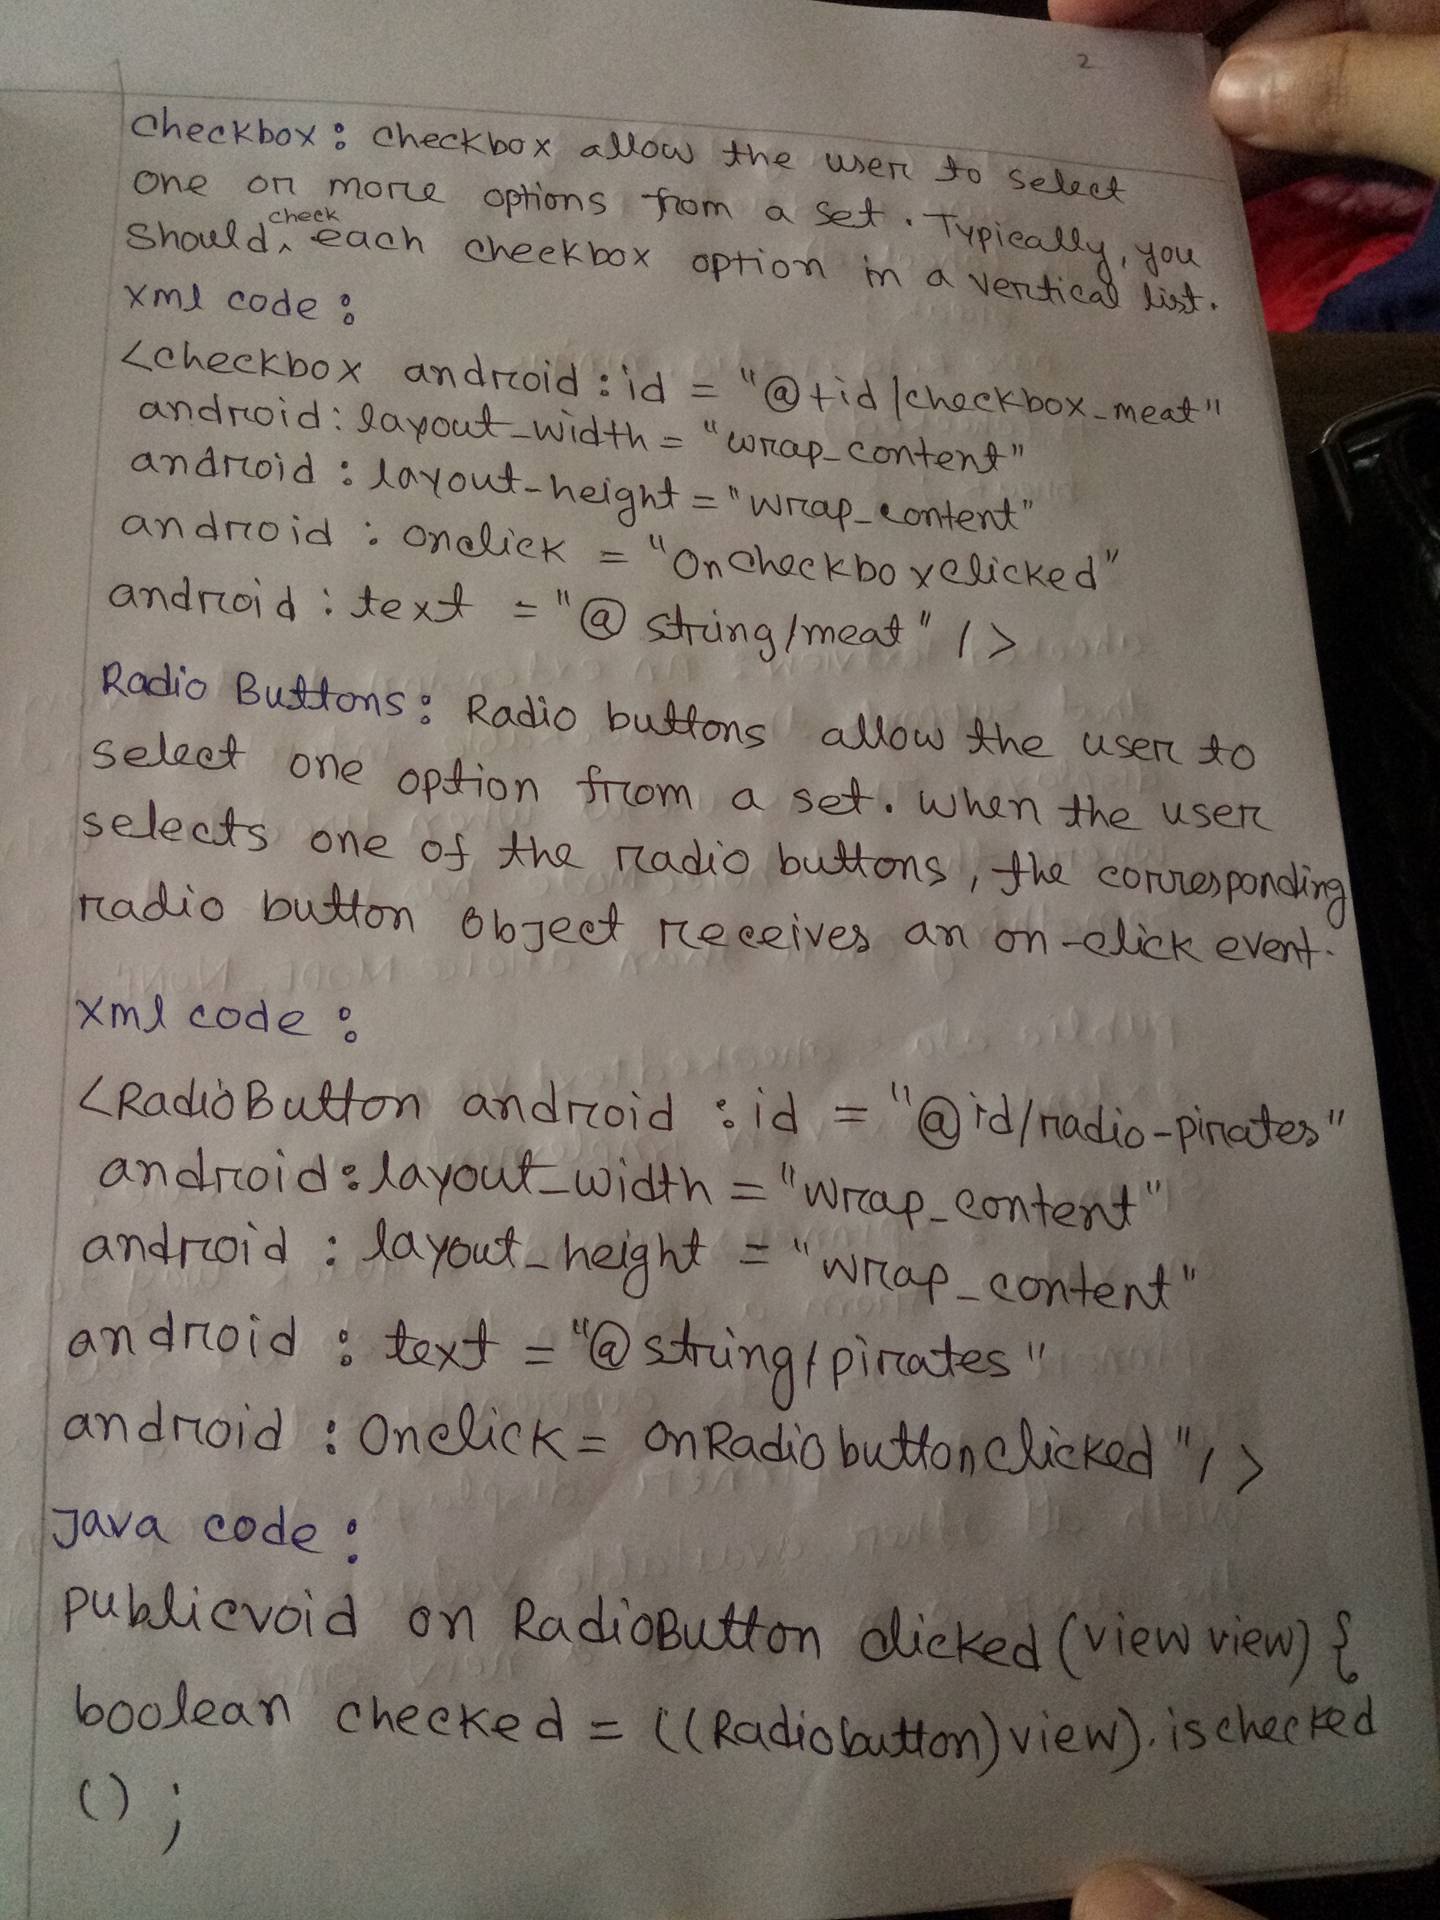 2
Checkbox: Checkbox allow the user to select
one or more options from a set. Typically, you
should check each checkbox option in a vertical list.
xml code:
<checkbox android:id = "@+id/checkbox_meat"
android:layout_width = "wrap_content"
android:layout-height = "wrap_content"
android:onclick = "OncheckboxClicked"
android:text = "@string/meat" />
Radio Buttons: Radio buttons allow the user to
select one option from a set. When the user
selects one of the radio buttons, the corresponding
radio button object receives an on-click event.
xml code:
<RadioButton android:id = "@id/radio-pirates"
android:layout_width = "wrap_content"
android:layout_height = "wrap_content"
android:text = "@string/pirates"
android:Onclick = onRadiobuttonclicked"/>
Java code:
publicvoid on RadioButton clicked (view view) {
boolean checked = ((Radiobutton) view). ischecked
();